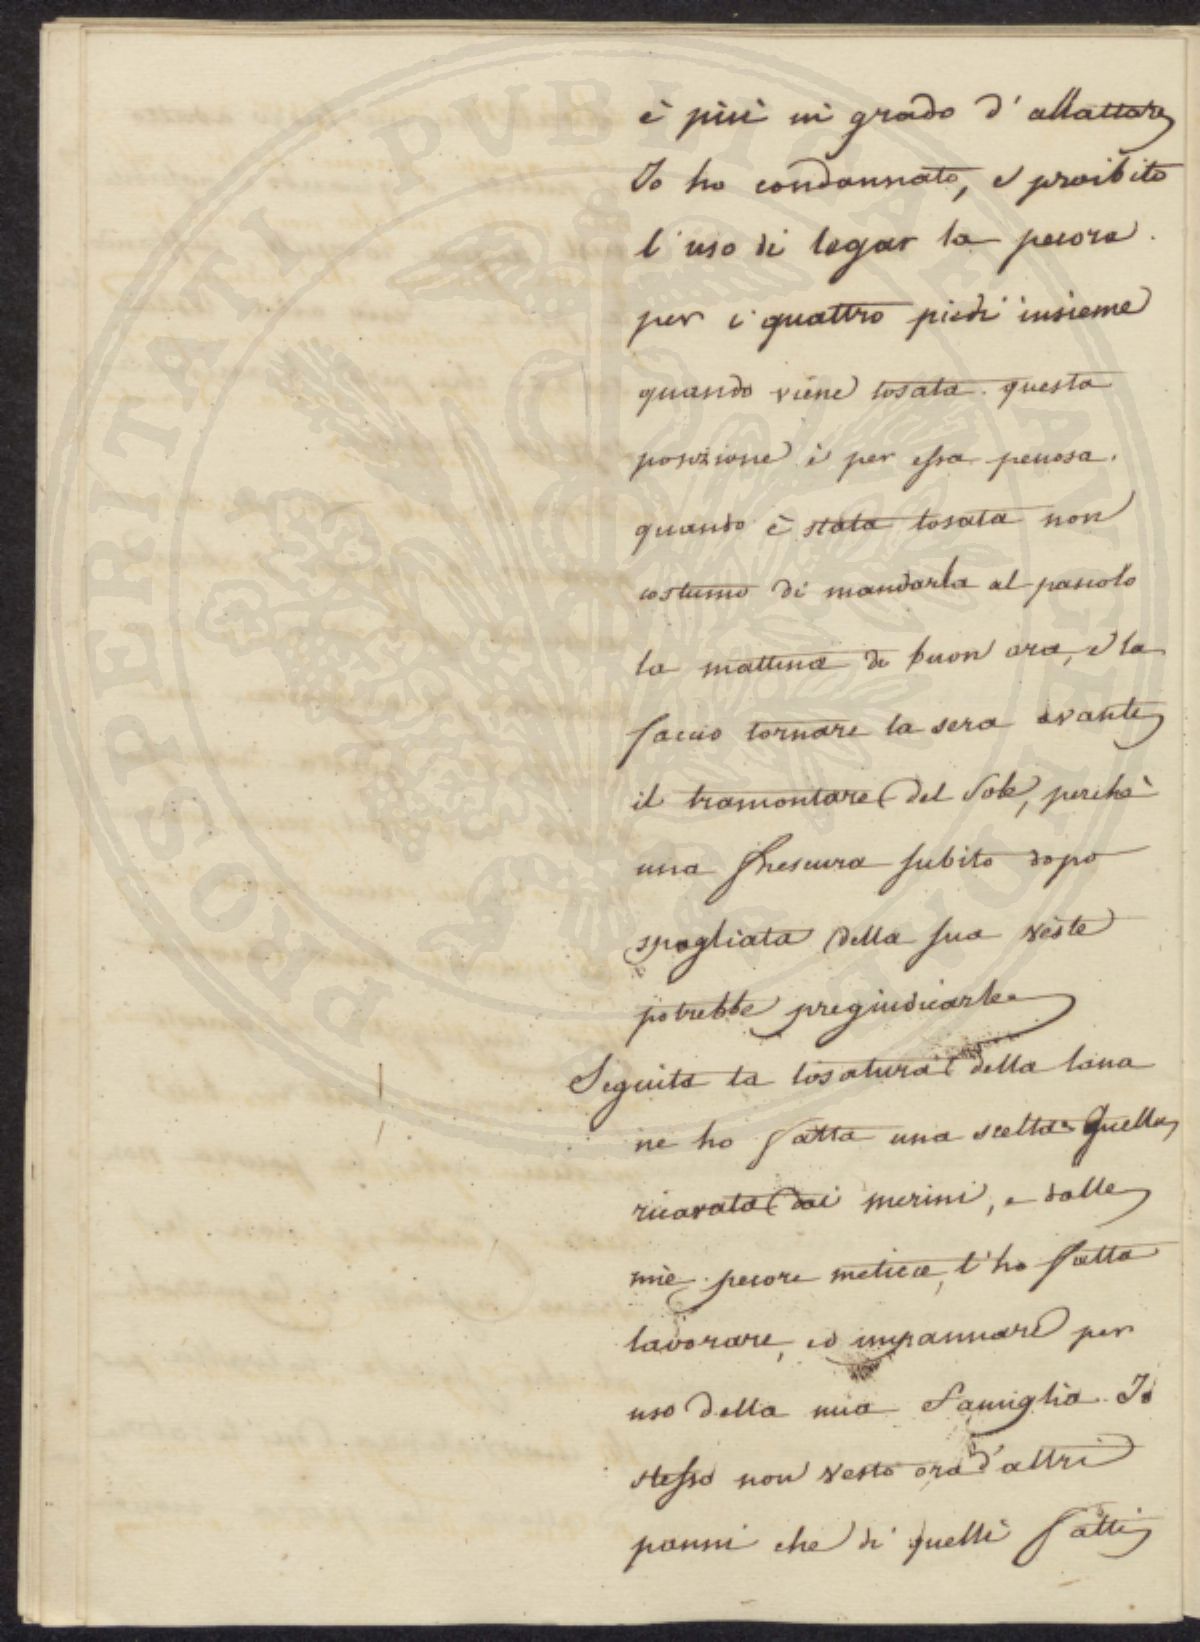 è più in grado d'allattare
Io ho condannato, e proibito
l'uso di legar la pecora
per i quattro piedi insieme
quando viene tosata. questa
posizione è per essa penosa.
quando è stata tosata non
costumo di mandarla al pascolo
la mattina di buon ora, e la
faccio tornare la sera avanti
il tramontare del Sole, perchè
una frescura subito dopo
spogliata della sua veste
potrebbe pregiudicarle.
Seguita la tosatura della lana
ne ho fatta una scelta. Quella
ricavata dai merini, e dalle
mie pecore meticce, l'ho fatta
lavorare, ed impannare per
uso della mia Famiglia. Io
stesso non vesto ora d'altri
panni che di quelli fatti
PROSPERITATI PUBLICAE AUGE